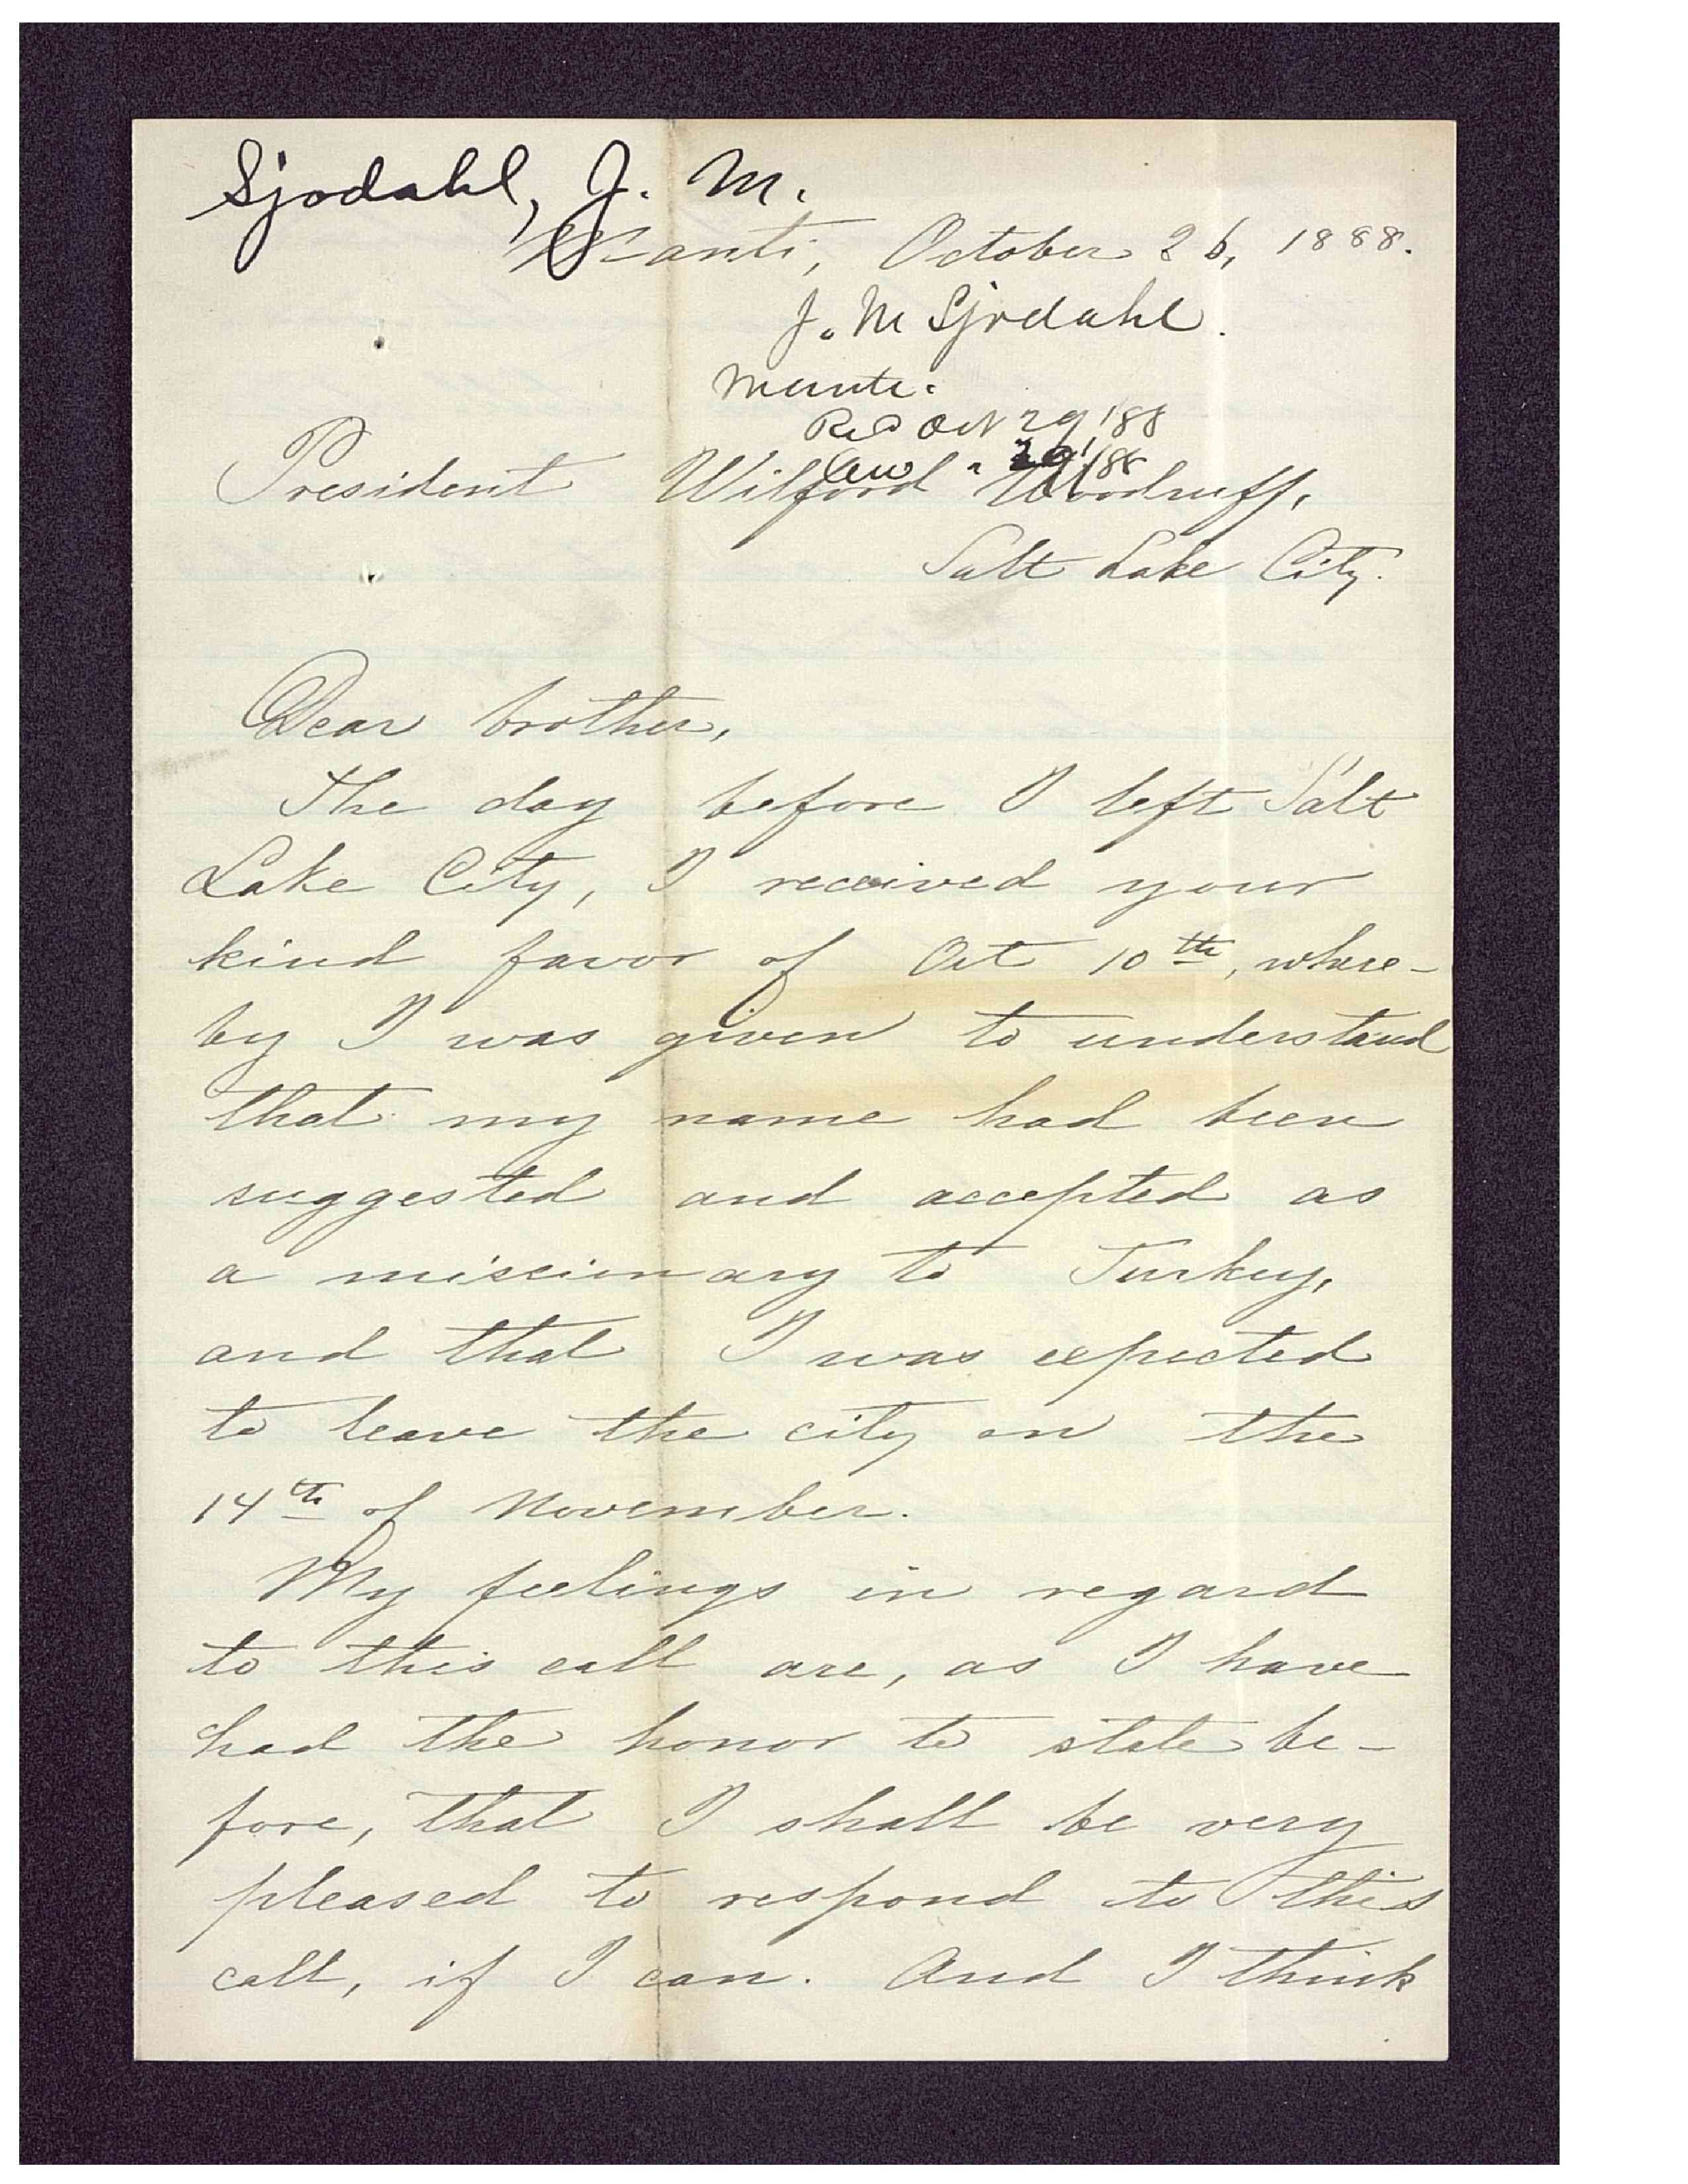 Sjodahl, J. M.
Manti, October 26, 1888.
J. M Sjodahl.
Manti.
Rec Oct 29 /88
President Wilford Woodruff,
Ans " /88
Salt Lake City.
Dear brother,
The day before I left Salt
Lake City, I received your
kind favor of Oct 10th, where-
by I was given to understand
that my name had been
suggested and accepted as
a missionary to Turkey,
and that I was expected
to leave the city on the
14th of November.
My feelings in regard
to this call are, as I have
had the honor to state be-
fore, that I shall be very
pleased to respond to this
call, if I can. And I think